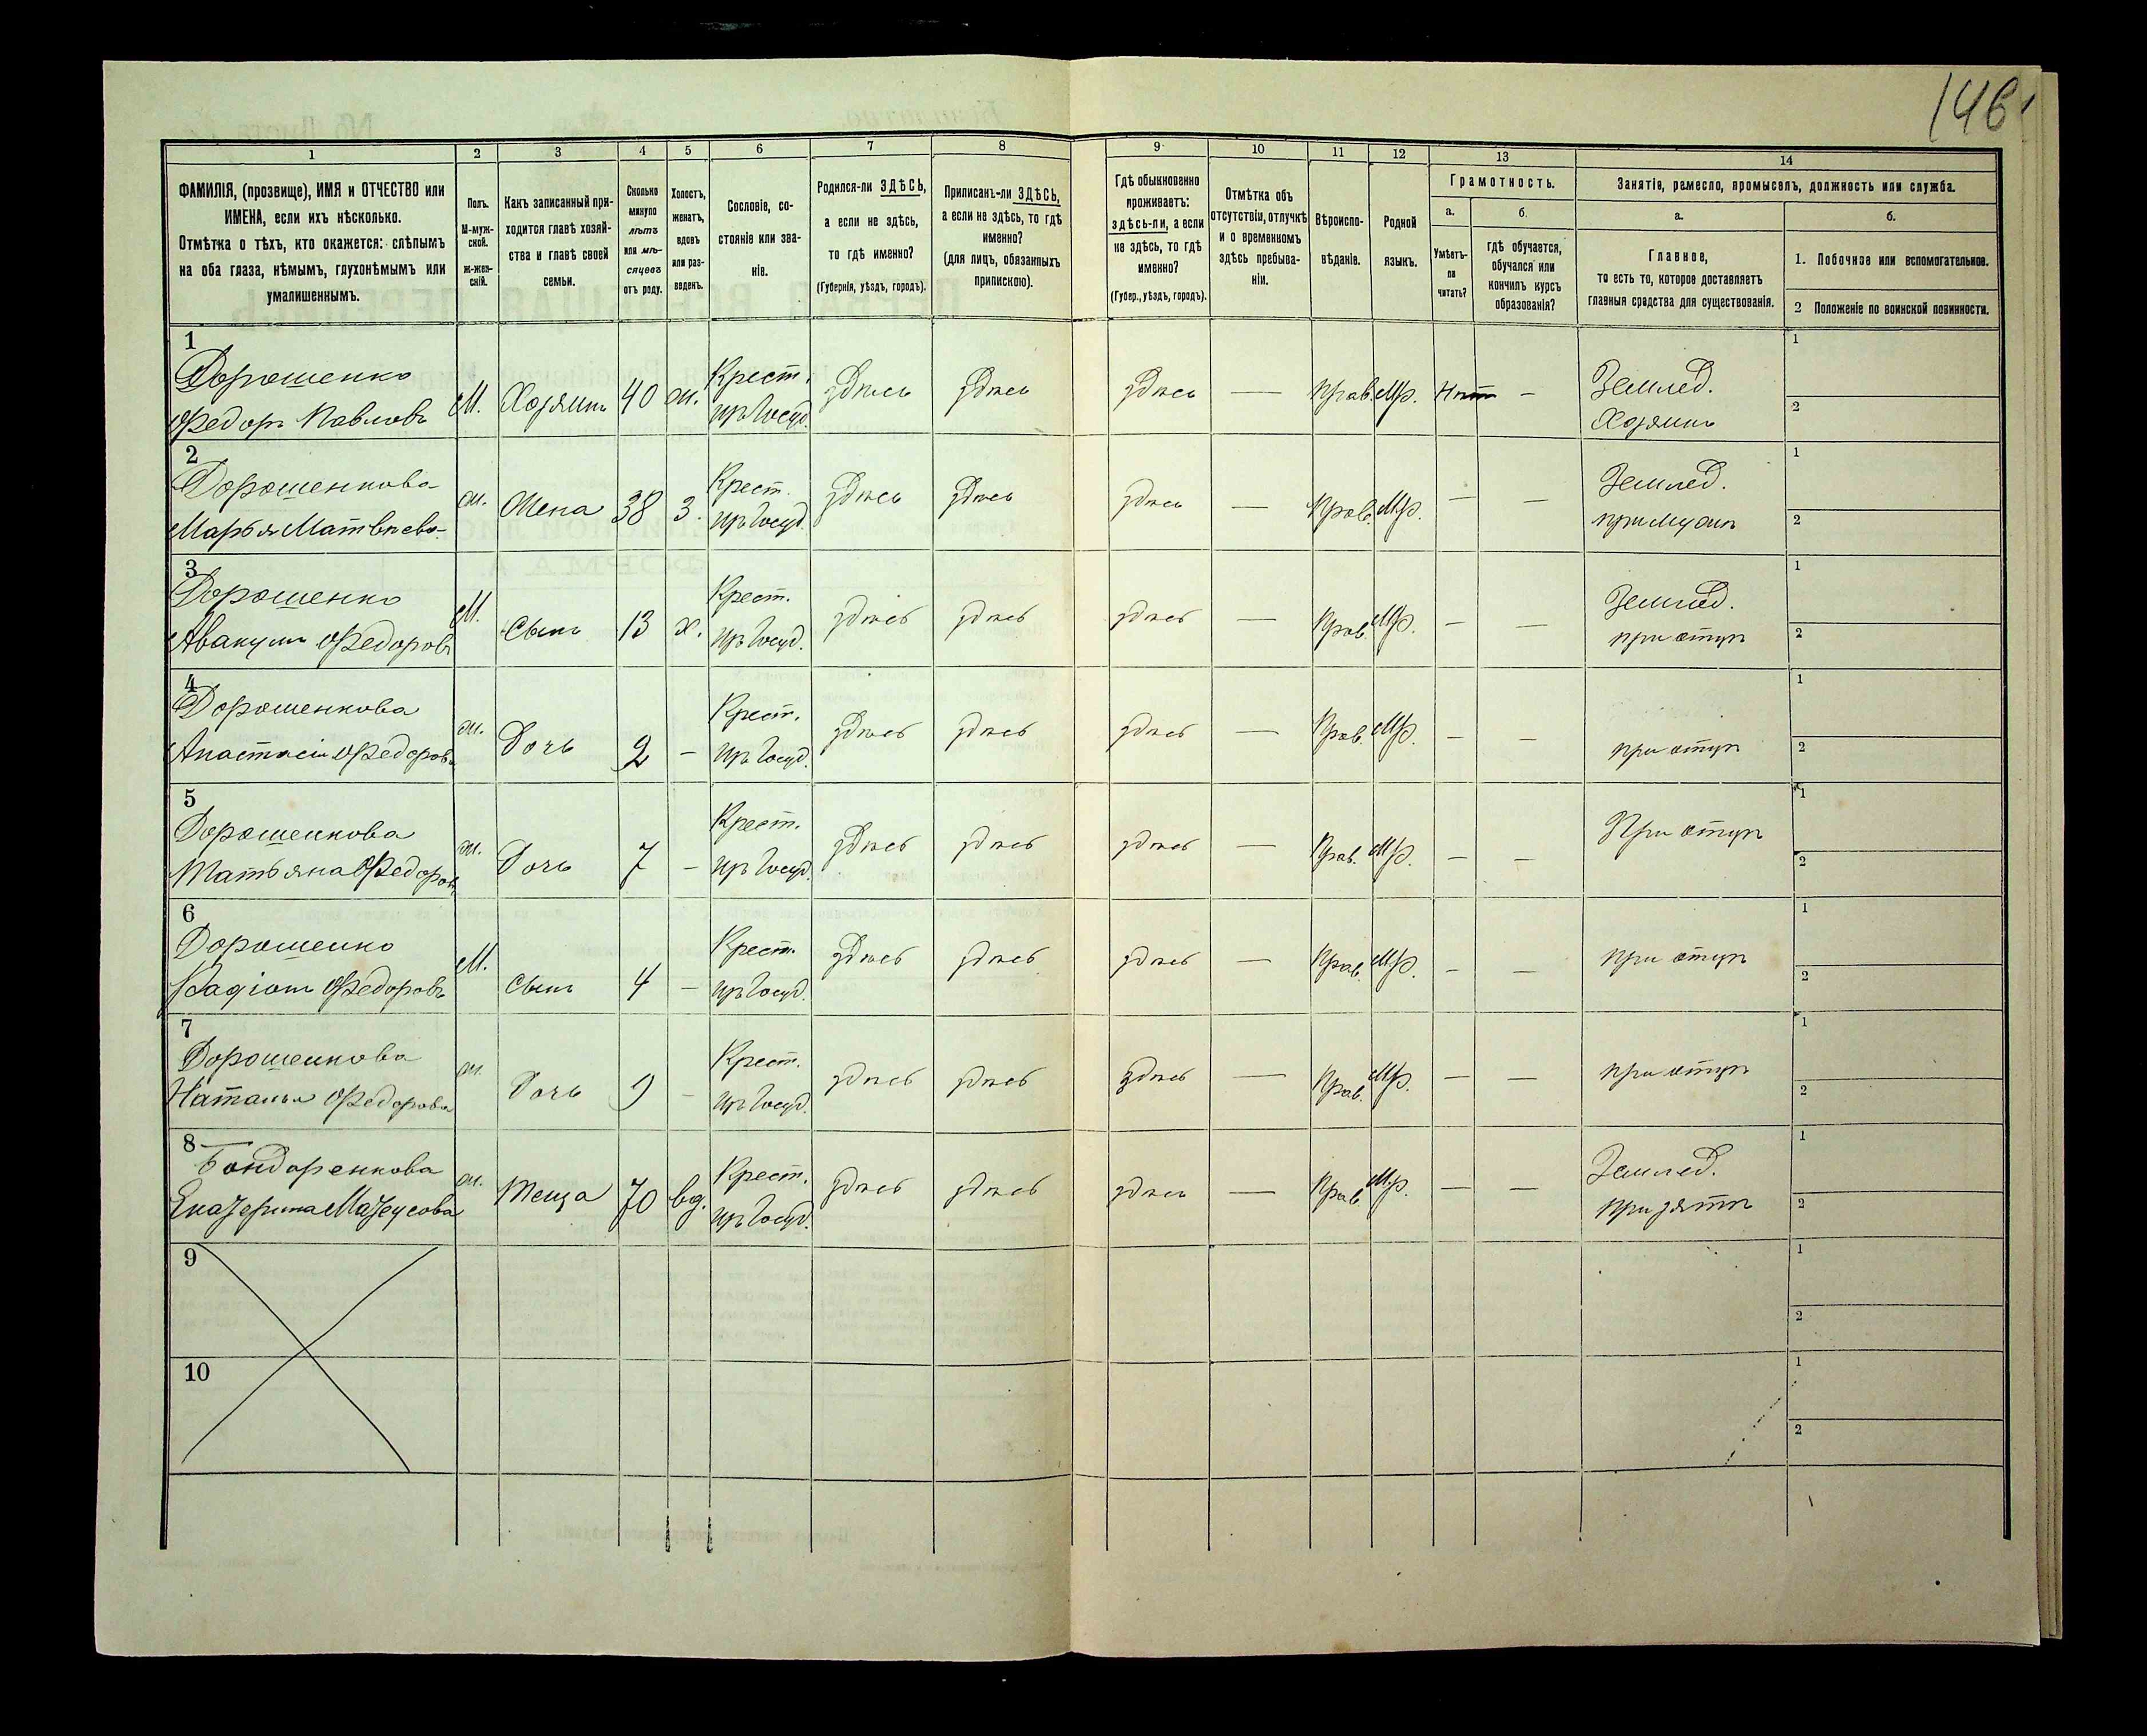 146
1
2
3
4
5
6
7
8
9
10
11
12
13
14
ФАМИЛІЯ, (прозвище), ИМЯ и ОТЧЕСТВО или
ИМЕНА, если ихъ нѣсколько.
Отмѣтка о тѣхъ, кто окажется: слѣпымъ
на оба глаза, нѣмымъ, глухонѣмымъ или
умалишеннымъ.
Полъ.
М-муж-
ской.
ж-жен-
скій.
Какъ записанный при-
ходится главѣ хозяй-
ства и главѣ своей
семьи.
Сколько
минуло
лѣтъ
или мѣ-
сяцевъ
отъ роду.
Холостъ,
женатъ,
вдовъ
или раз-
веденъ.
Сословіе, со-
стояніе или зва-
ніе.
Родился-ли ЗДѢСЬ,
а если не здѣсь,
то гдѣ именно?
(Губернія, уѣздъ, городъ).
Приписанъ-ли ЗДѢСЬ,
а если не здѣсь, то гдѣ
именно?
(для лицъ, обязанныхъ
припискою).
Гдѣ обыкновенно
проживаетъ:
здѣсь-ли, а если
не здѣсь, то гдѣ
именно?
(Губер., уѣздъ, городъ).
Отмѣтка объ
отсутствіи, отлучкѣ
и о временномъ
здѣсь пребыва-
ніи.
Вѣроиспо-
вѣданіе.
Родной
языкъ.
Грамотность.
а.
Умѣетъ-
ли
читать?
б.
гдѣ обучается,
обучался или
кончилъ курсъ
образованія?
Занятіе, ремесло, промыселъ, должность или служба.
а.
Главное,
то есть то, которое доставляетъ
главныя средства для существованія.
б.
1. Побочное или вспомогательное.
2 Положеніе по воинской повинности.
1
Дорошенко
Федоръ Павловъ
М. Хозяинъ 40 ж.
Крест.
изъ Госуд.
здѣсь здѣсь здѣсь — Прав. Мр. Нѣтъ —
Землед.
Хозяинъ
1
2
2
Дорошенкова
Марья Матвѣева
ж. Жена 38 З.
Крест.
изъ Госуд.
здѣсь здѣсь здѣсь — Прав. Мр. — —
Землед.
при мужѣ
1
2
3
Дорошенко
Авакумъ Федоровъ
М. Сынъ 13 х.
Крест.
изъ Госуд.
здѣсь здѣсь здѣсь — Прав. Мр. — —
Землед.
при отцѣ
1
2
4
Дорошенкова
Анастасія Федорова
ж. Дочь 9 —
Крест.
изъ Госуд.
здѣсь здѣсь здѣсь — Прав. Мр. — —
при отцѣ
1
2
5
Дорошенкова
Татьяна Федоров
ж. Дочь 7 —
Крест.
изъ Госуд.
здѣсь здѣсь здѣсь — Прав. Мр. — —
При отцѣ
1
2
6
Дорошенко
Федоровъ
М. Сынъ 4 —
Крест.
изъ Госуд.
здѣсь здѣсь здѣсь — Прав. Мр. — —
при отцѣ
1
2
7
Дорошенкова
Наталья Федорова
ж. Дочь —
Крест.
изъ Госуд.
здѣсь здѣсь здѣсь — Прав. Мр. — —
при отцѣ
1
2
8
Бондаренкова
Екатерина
ж. Теща 70 вд.
Крест.
изъ Госуд.
здѣсь здѣсь здѣсь — Прав. Мр. — —
Землед.
при зятѣ
1
2
9
1
2
10
1
2